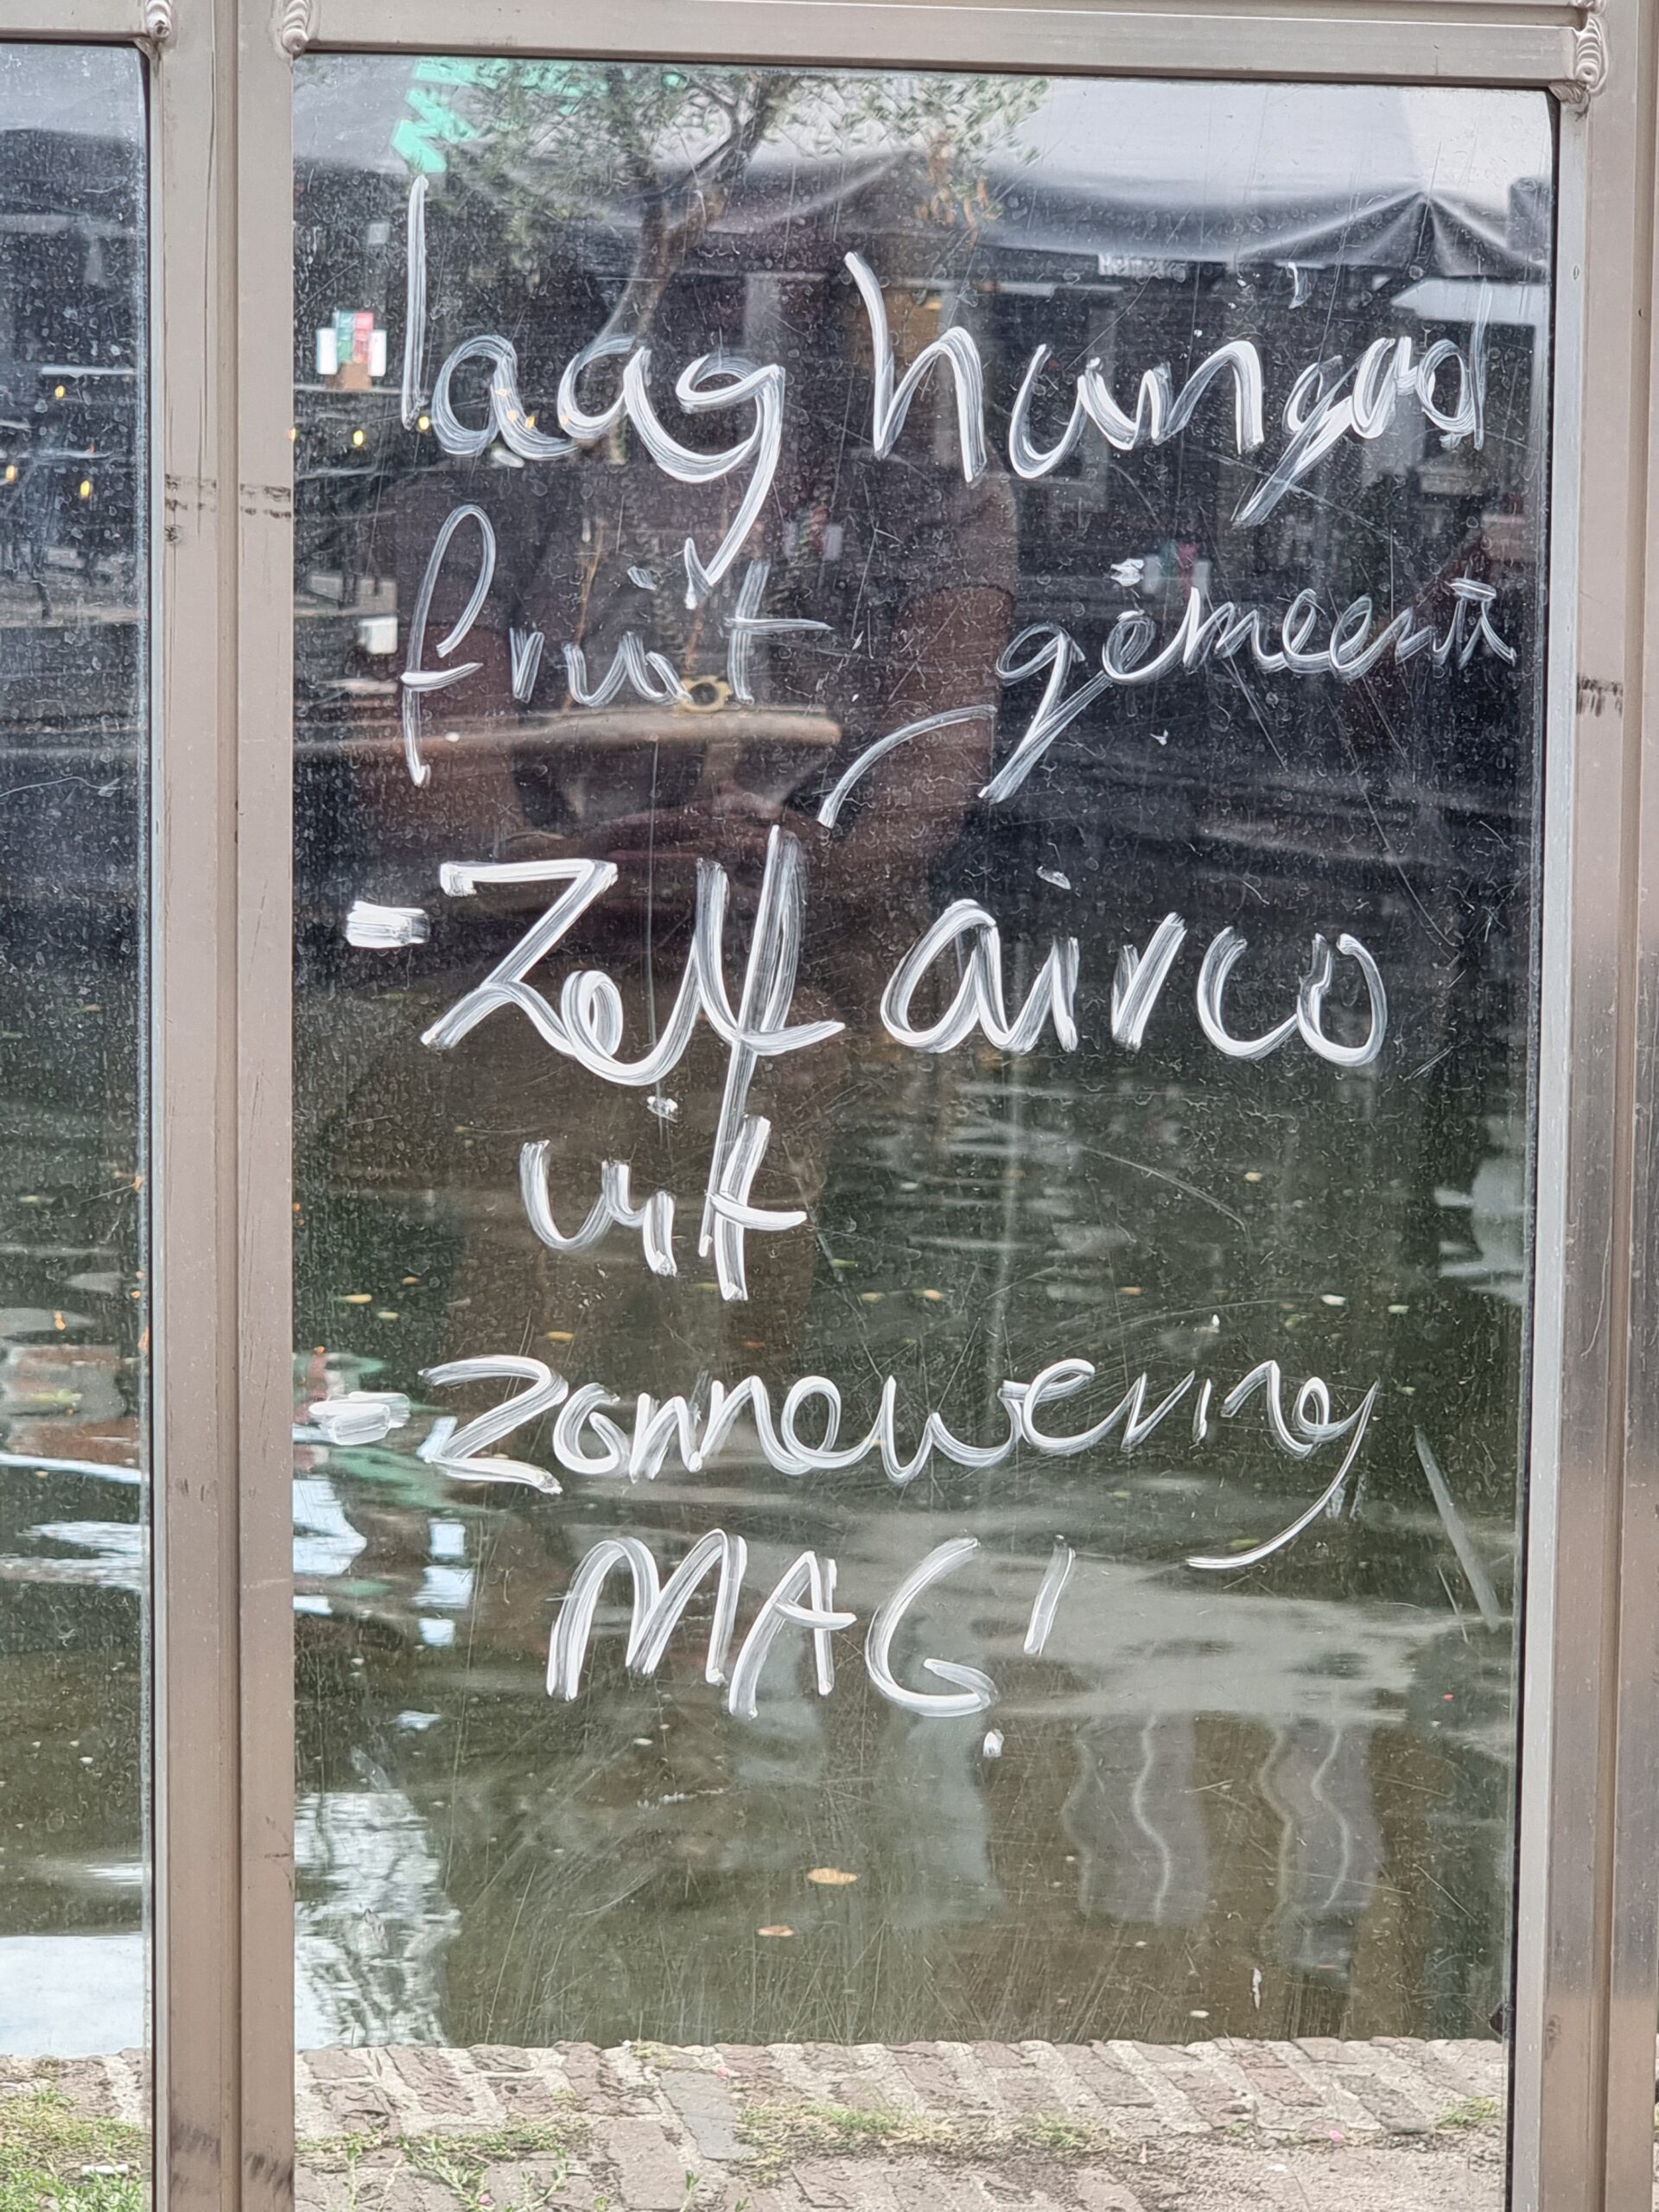 laag hangend
fruit gemeente
- Zelf airco
uit
- Zonnewering
MAG!